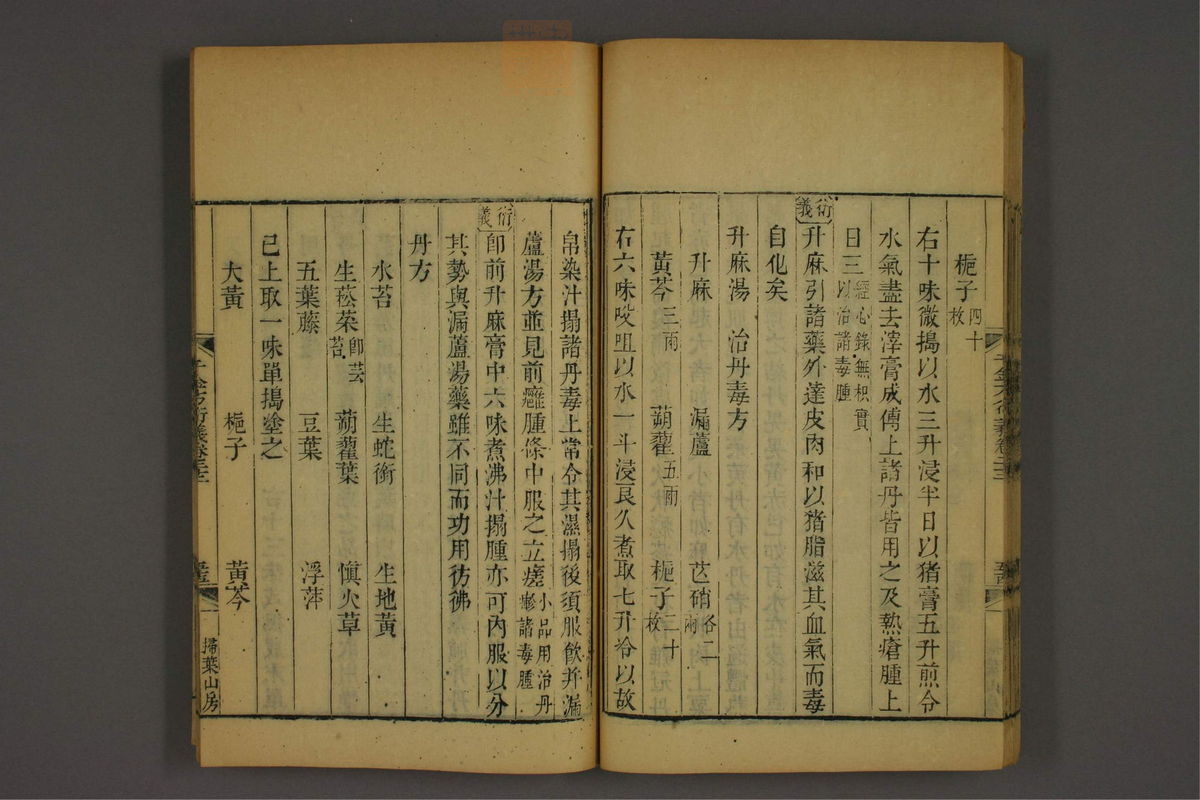 梔子四十枚
右十味微搗以水三升浸半日以猪膏五升煎令
水氣盡去滓膏成傅上諸丹皆用之及熱瘡腫上
日三經心錄無枳實以治諸毒腫
衍義升麻引諸藥外達皮肉和以猪脂滋其血氣而毒
自化矣
升麻湯　治丹毒方
升麻　漏蘆　芒硝各二兩
黃芩三兩　蒴藋五兩　梔子二十枚
右六味㕮咀以水一斗浸良久煮取七升冷以故
帛染汁搨諸丹毒上常令其濕搨後須服飲并漏
蘆湯方並見前癰腫條中服之立瘥小品用治丹𤻤諸毒腫
衍義卽前升麻膏中六味煮沸汁搨腫亦可內服以分
其勢與漏蘆湯藥雖不同而功用彷彿
丹方
水苔　生蛇銜　生地黃
生菘菜卽芸苔　蒴藋葉　愼火草
五葉藤　豆葉　浮萍
大黃　梔子　黃芩
已上取一味單搗塗之
千金方衍義卷二十二
掃葉山房